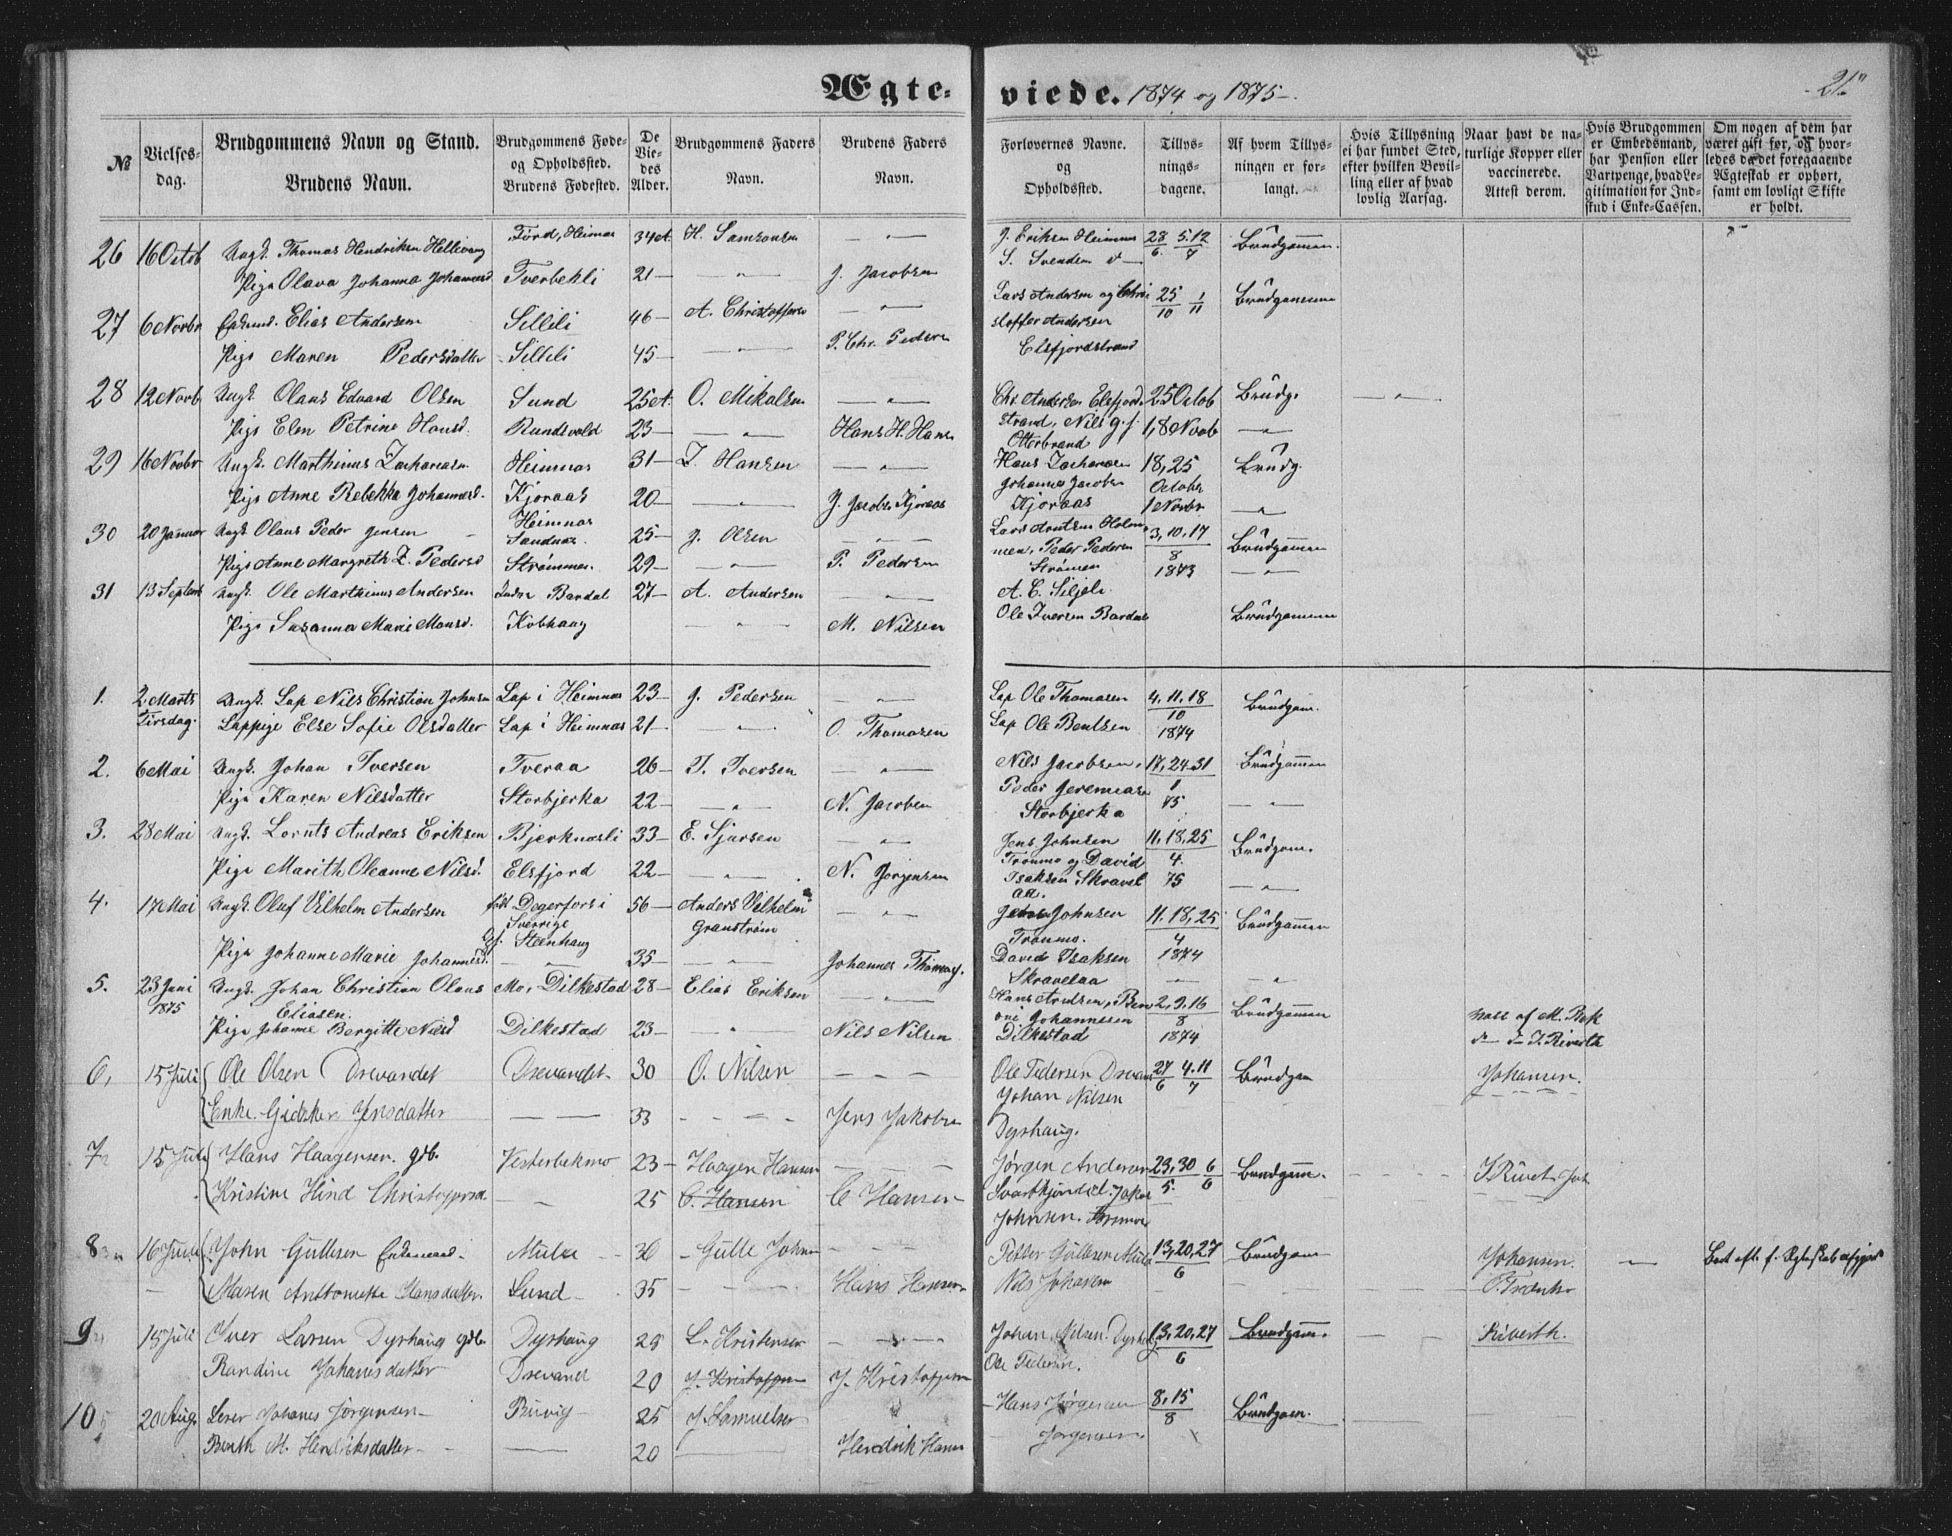 Ægte-
viede. 1874 og 1875.
21.
№
Vielses-
dag.
Brudgommens Navn og Stand.
Brudens Navn.
Brudgommens Føde-
og Opholdssted.
Brudens Fødested.
De
Vie-
des
Alder.
Brudgommens Faders
Navn.
Brudens Faders
Navn.
Forlovernes Navne.
og
Opholdssted.
Tillys-
nings-
dagene.
Af hvem Tillys-
ningen er for-
langt.
Hvis Tillysning
ei har fundet Sted,
efter hvilken Bevil-
ling eller af hvad
lovlig Aarsag.
Naar havt de na-
turlige Kopper eller
vaccinerede.
Attest derom.
Hvis Brudgommen
er Embedsmand,
har Pension eller
Vartpenge, hvad Le-
gitimation for Ind-
skud i Enke-Cassen.
Om nogen af dem har
været gift før, og hvor-
ledes da det foregaaende
Ægteskab er ophørt,
samt om lovligt Skifte
er holdt.
26 16 Octob Ungk. Thomas Hendriksen Hellevang Förd, Heimnæs 34 A. H. Samsonsen — " — J. Eriksen Heimnæs 28/6 5.12/7 Brudgommen.
Pige Olava Johanna Johannesd Tverbekli 21 — " — J. Jacobsen S. Svendsen
27 6 Novbr Enkemd. Elias Andersen Sillili 46 — A. Christoffersen — " — Lars Andersen og Chri 25/10 1/11 Brudgommen
stoffer Andersen
Pige Maren Pedersdatter Sillili 45 — " — P. Chr. Pedersen Elsfjordstrand
28 12 Novb Ungk. Olaus Edvard Olsen Sund 25 A. O. Mikalsen — " — Chr. Andersen Elsfjord 25 Octob Brudg. — " —
Pige Elen Petrine Hansd. Rundvold 23 — " — Hans H. Hansen strand, Nils 1, 8 Novb — " —
Otterbrand
29 16 Novbr Ungk. Marthinus Zachariasen Heimnæs 31 — Z. Hansen — " — Hans Zachariasen 18, 25 Brudg.
Johannes Jacobsen October
Pige Anne Rebekka Johannesd. Kjoraas 20 — " — J. Jacobs. Kjoraas Kjoraas 1 Novbr — " —
30 20 Januar Ungk. Olaus Peder Jensen Heimnæs
Sandnæs. 25 — J. Olsen — " — Lars Arntsen Holm 3, 10, 17/8 Brudgommen
men, Peder Pedersen
Pige Anne Margreth Z. Pedersd Strømmen. 29 — " — P. Pedersen Strømen 1873 — " —
31 13 Septemb Ungk. Ole Marthinus Andersen Indre Bardal 27 — A. Andersen — " — A. C. Siljeli.
Pige Susanna Marie Monsd. Kobhaug — " — M. Nilsen Ole Iversen Bardal Brudgommen
1. 2 Marts Ungk. Lap Nils Christian Johnsen Lap i Heimnæs 23 — J. Pedersen — " — Lap Ole Thomasen 4, 11, 18/10 Brudgom.
Tirsdag. Lappige Else Sofie Olsdatter Lap i Heimnæs 21 — " — O. Thomasen Lap Ole Bentsen 1874
2. 6 Mai Ungk. Johan Iversen Tveraa 26 — I. Iversen — " — Nils Jacobsen, 17, 24. 31/1 Brudgommen
Pige Karen Nilsdatter Storbjerka 22 — " — N. Jacobsen Peder Jeremiasen 75 — " —
Storbjerka
3. 28 Mai Ungk. Lornts Andreas Eriksen Bjerknæsli 33 — E. Sjursen — " — Jens Johnsen 11, 18, 25/4. Brudgom.
Tronmo og David
Pige Marith Oleanne Nilsd. Elsfjord 22 — " — N. Jørgensen Isaksen Skravel 75 — " —
aa.
4. 17 Mai Ungk. Oluf Vilhelm Andersen Degerfors i 56 — Anders Vilhelm — " — Johnsen 11. 18, 25/4 Brudgommen
Sverrige Granstrøm Tronmo.
Steenhaug
Pige Johanne Marie Johannesd. 35 — " — Johannes Thomas. David Isaksen 1874
Skravelaa — " —
5. 23 Juni Ungk. Johan Christian Olaus Mo, Dilkestad 28 — Elias Eriksen — " — Hans Arntsen, Ben 2, 9, 16/8 Brudgommen
1875 Eliasen. oni Johannesen
Pige Johanne Bergitte Nilsd Dilkestad 23 — " — Nils Nilsen Dilkestad 1874
6, 15 Juli Ole Olsen Drevandet Drevandet 30 O. Nilsen — — — Ole Pedersen Drevand 27/6 4.11/7 Brudgom Johansen.
Enke Gidsken Jensdatter — — 33 — — — Jens Jakobsen Johan Nilsen
Dyrhaug.
7 15 Juli Hans Haagensen. gdb. Vesterbekmo 23 — Haagen Hansen — — — Jørgen Andersen 23, 30/5 6/6 Brudgom. — — — I. Rivert
Kristine Hind Christoffersd — — 25 C. Hansen C Hansen Svartkjøndlid. Jakob
Johnsen.
8 16 Juli John Gullesen Enkemand Mula 30 — Gulle Johns — — — Petter Gullesen Mula 13, 20, 27/6 Brudgom Johansen. —
Maren Anttonette Hansdatter. Lund — 35 — — — Hans Hansen Nils Johansen — — —
9 15 Juli Iver Larsen Dyrhaug gdb. Dyrhaug 25 L. Kristensen — " — Johan Nilsen. Dyrhaug 13, 20, 27/6 Brudgom. — — — Riverth.
Randine Johanesdatter Drevand 20 J. Kristoffersen J. Kristoffersen Ole Pedersen.
10 20 Aug. Johanes Jørgensen — Buvig 25 J. Samuelsen Hans Jørgensen 8, 15/8 Brudgom.
Berith M. Hendriksdatter — 20 — Hendrik Hansen Jørgensen